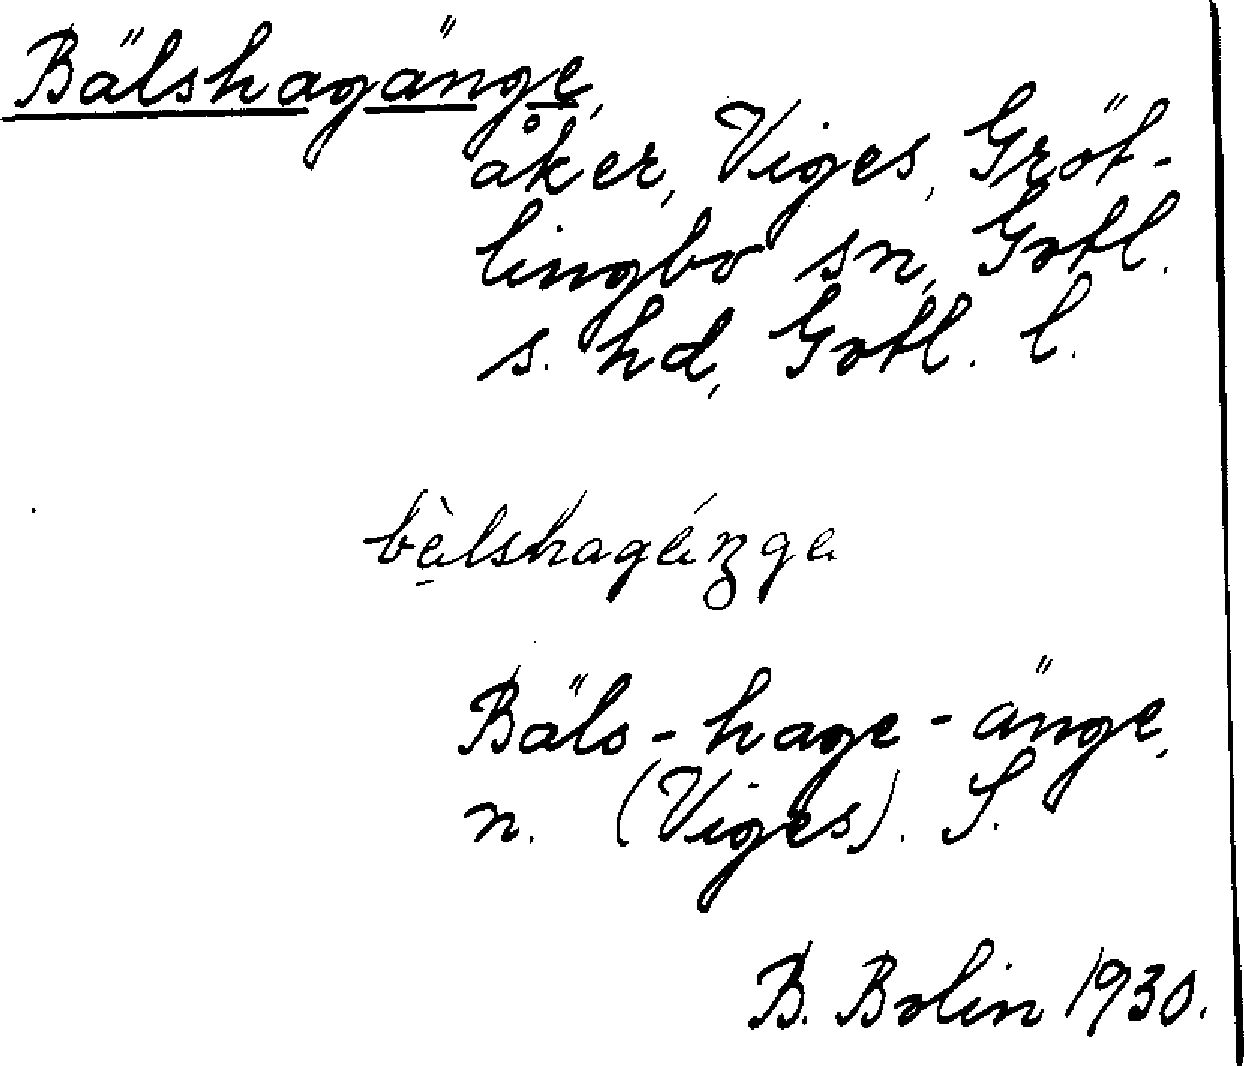 Bälshagänge,
åker, Viges, Gröt-
lingbo sn, Gotl.
s. hd, Gotl. l.
Bäls-hage-änge,
n. (Viges). S.
B. Bolin 1930.